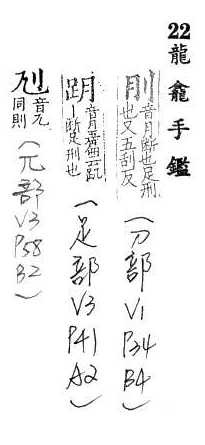 22龍龕手鑑
刖音月断也足刑
也又五刮反
(刀部V1 P34 B4)
跀音月
丨断足刑也
(足部V3 P41 A2)
音兀
同刖
(兀部V3 P58 B2)